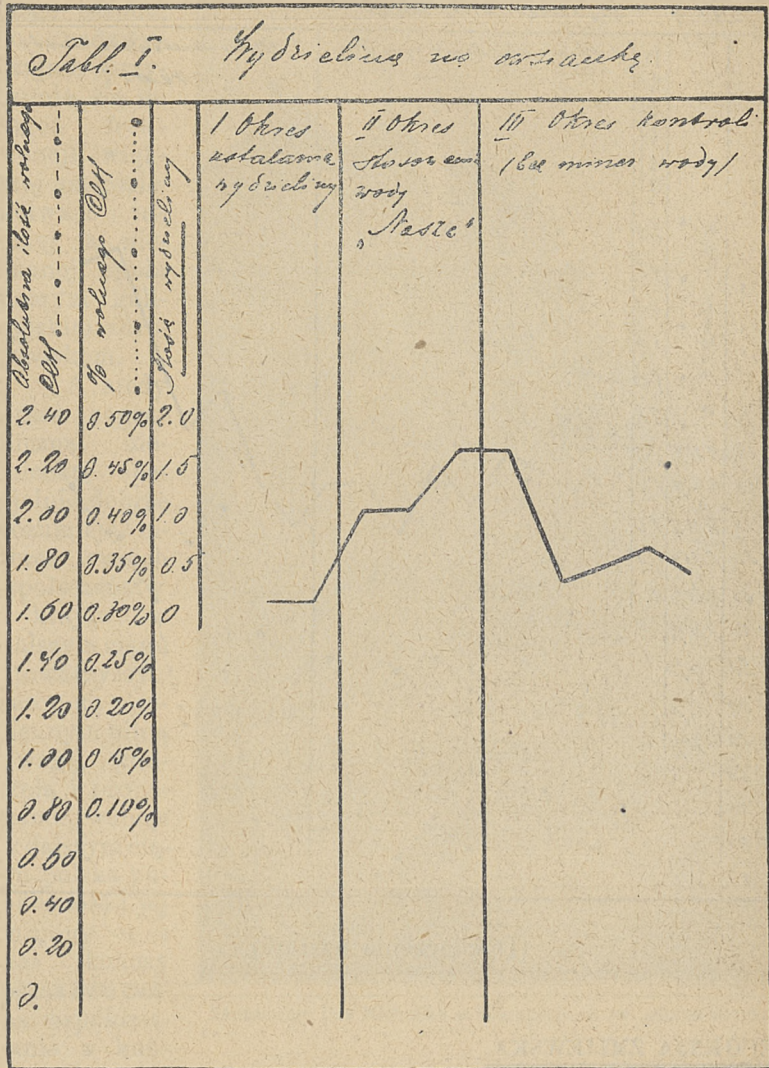 Tabl. I. Wydzielina na owsiankę.
Absolutna ilość wolnego
ClH
% wolnego ClH
Ilość wydzieliny
I Okres
ustalania
wydzieliny
II Okres
wody
„Naszc"
III Okres kontroli
/bez miner wody/
2.40 0.50% 2.0
2.20 0.45% 1.5
2.00 0.40% 1.0
1.80 0.35% 0.5
1.60 0.30% 0
1.40 0.25%
1.20 0.20%
1.00 0.15%
0.80 0.10%
0.60
0.40
0.20
0.